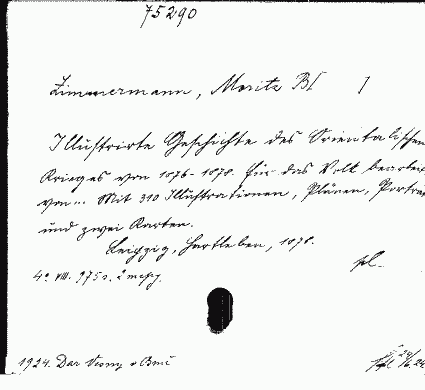 75290
Zimmermann, Moritz BI
Illustrirte Geschichte des Orientalischen
Krieges von 1876-1878. Für das Volk bearbeit
von... Mit 310 Illustrationen, Plänen, Porträ
und zwei Karten.
Leipzig, Hartleben, 1878.
4° VIII. 975 s. 2 mapy.
pl.
1924. Dar